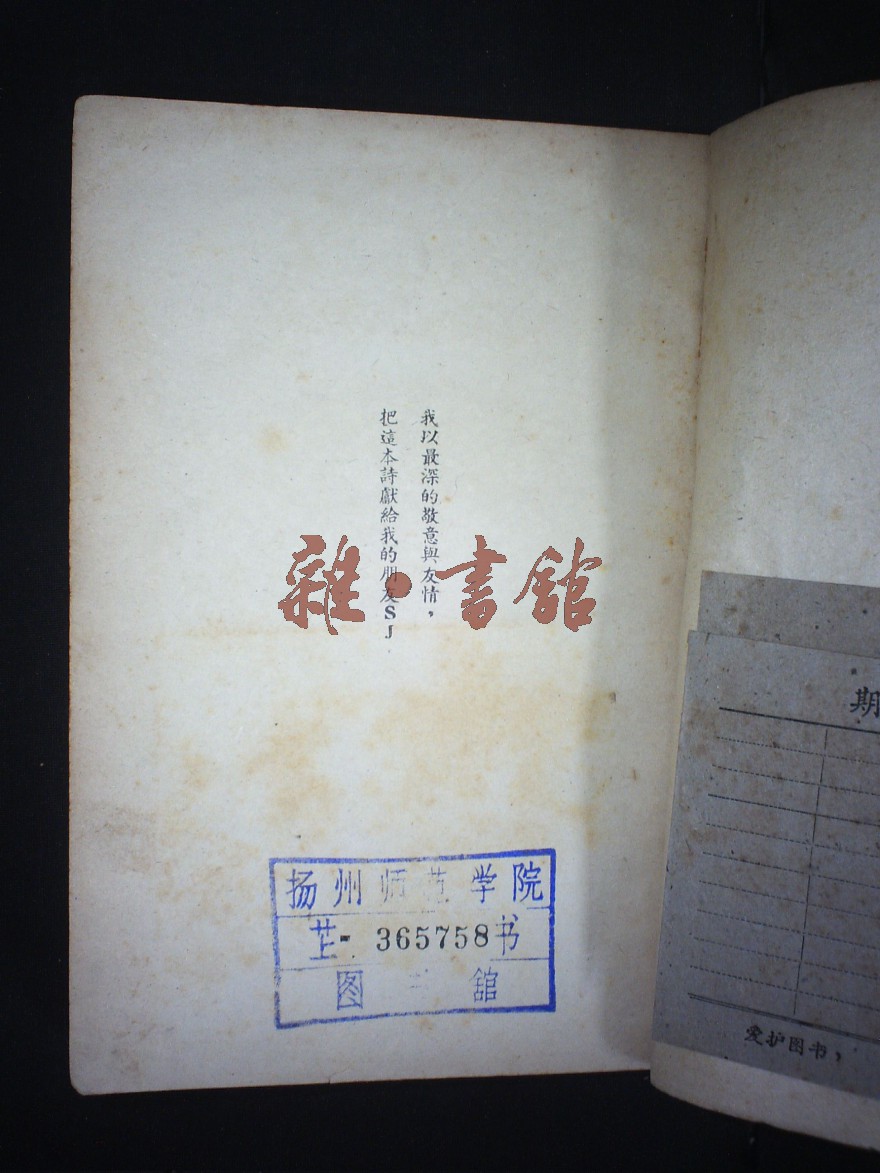 我以最深的敬意與友情，
把這本詩獻給我的朋友SJ
雜·書館
扬州师范学院
365758书
图 館
期
爱护图书，